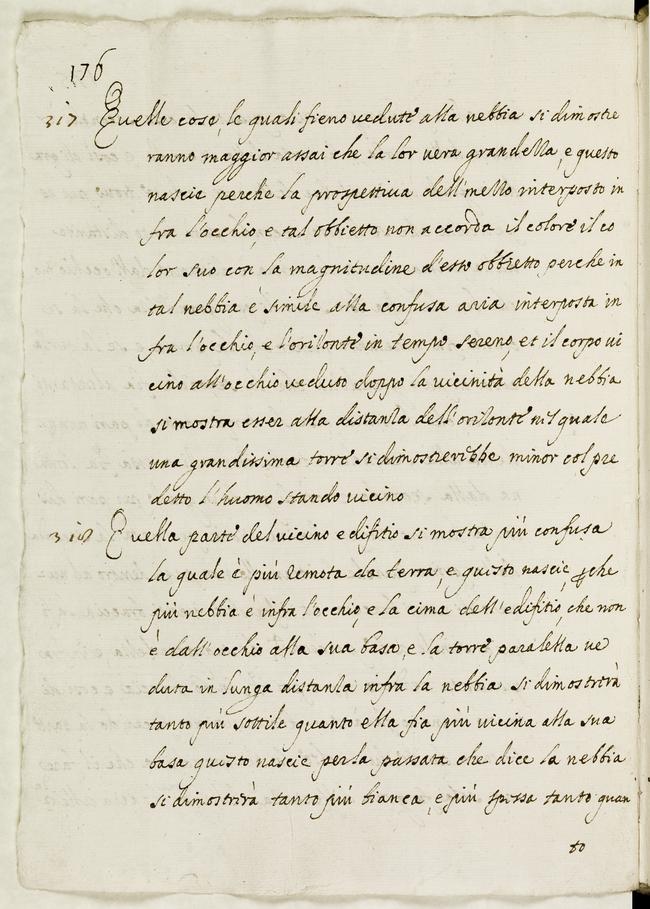 176
317 Quelle cose, le quali fieno vedute alla nebbia si dimostre
ranno maggior assai che la lor vera grandezza, e questo
nascie perche la prospettiva dell'mezzo interposto in
fra l'occhio, e tal obbietto non accorda il colore il co
lor suo con la magnitudine d'esso obbietto perche in
tal nebbia è simile alla confusa aria interposta in
fra l'occhio, e l'orizonte in tempo sereno, et il corpo vi
cino all'occhio veduto doppo la vicinità della nebbia
si mostra esser alla distanza dell'orizonte nel quale
una grandissima torre si dimostrerebbe minor col pre
detto l'huomo stando vicino
318 Quella parte del vicino edifitio si mostra più confusa
la quale è più remota da terra, e questo nascie, perche
più nebbia è infra l'occhio, e la cima dell'edifitio, che non
è dall'occhio alla sua basa, e la torre paralella ve
duta in lunga distanza infra la nebbia si dimostrerà
tanto più sottile quanto ella fia più vicina alla sua
basa questo nascie per la passata che dice la nebbia
si dimostrerà tanto più bianca, e più spessa tanto quan
to